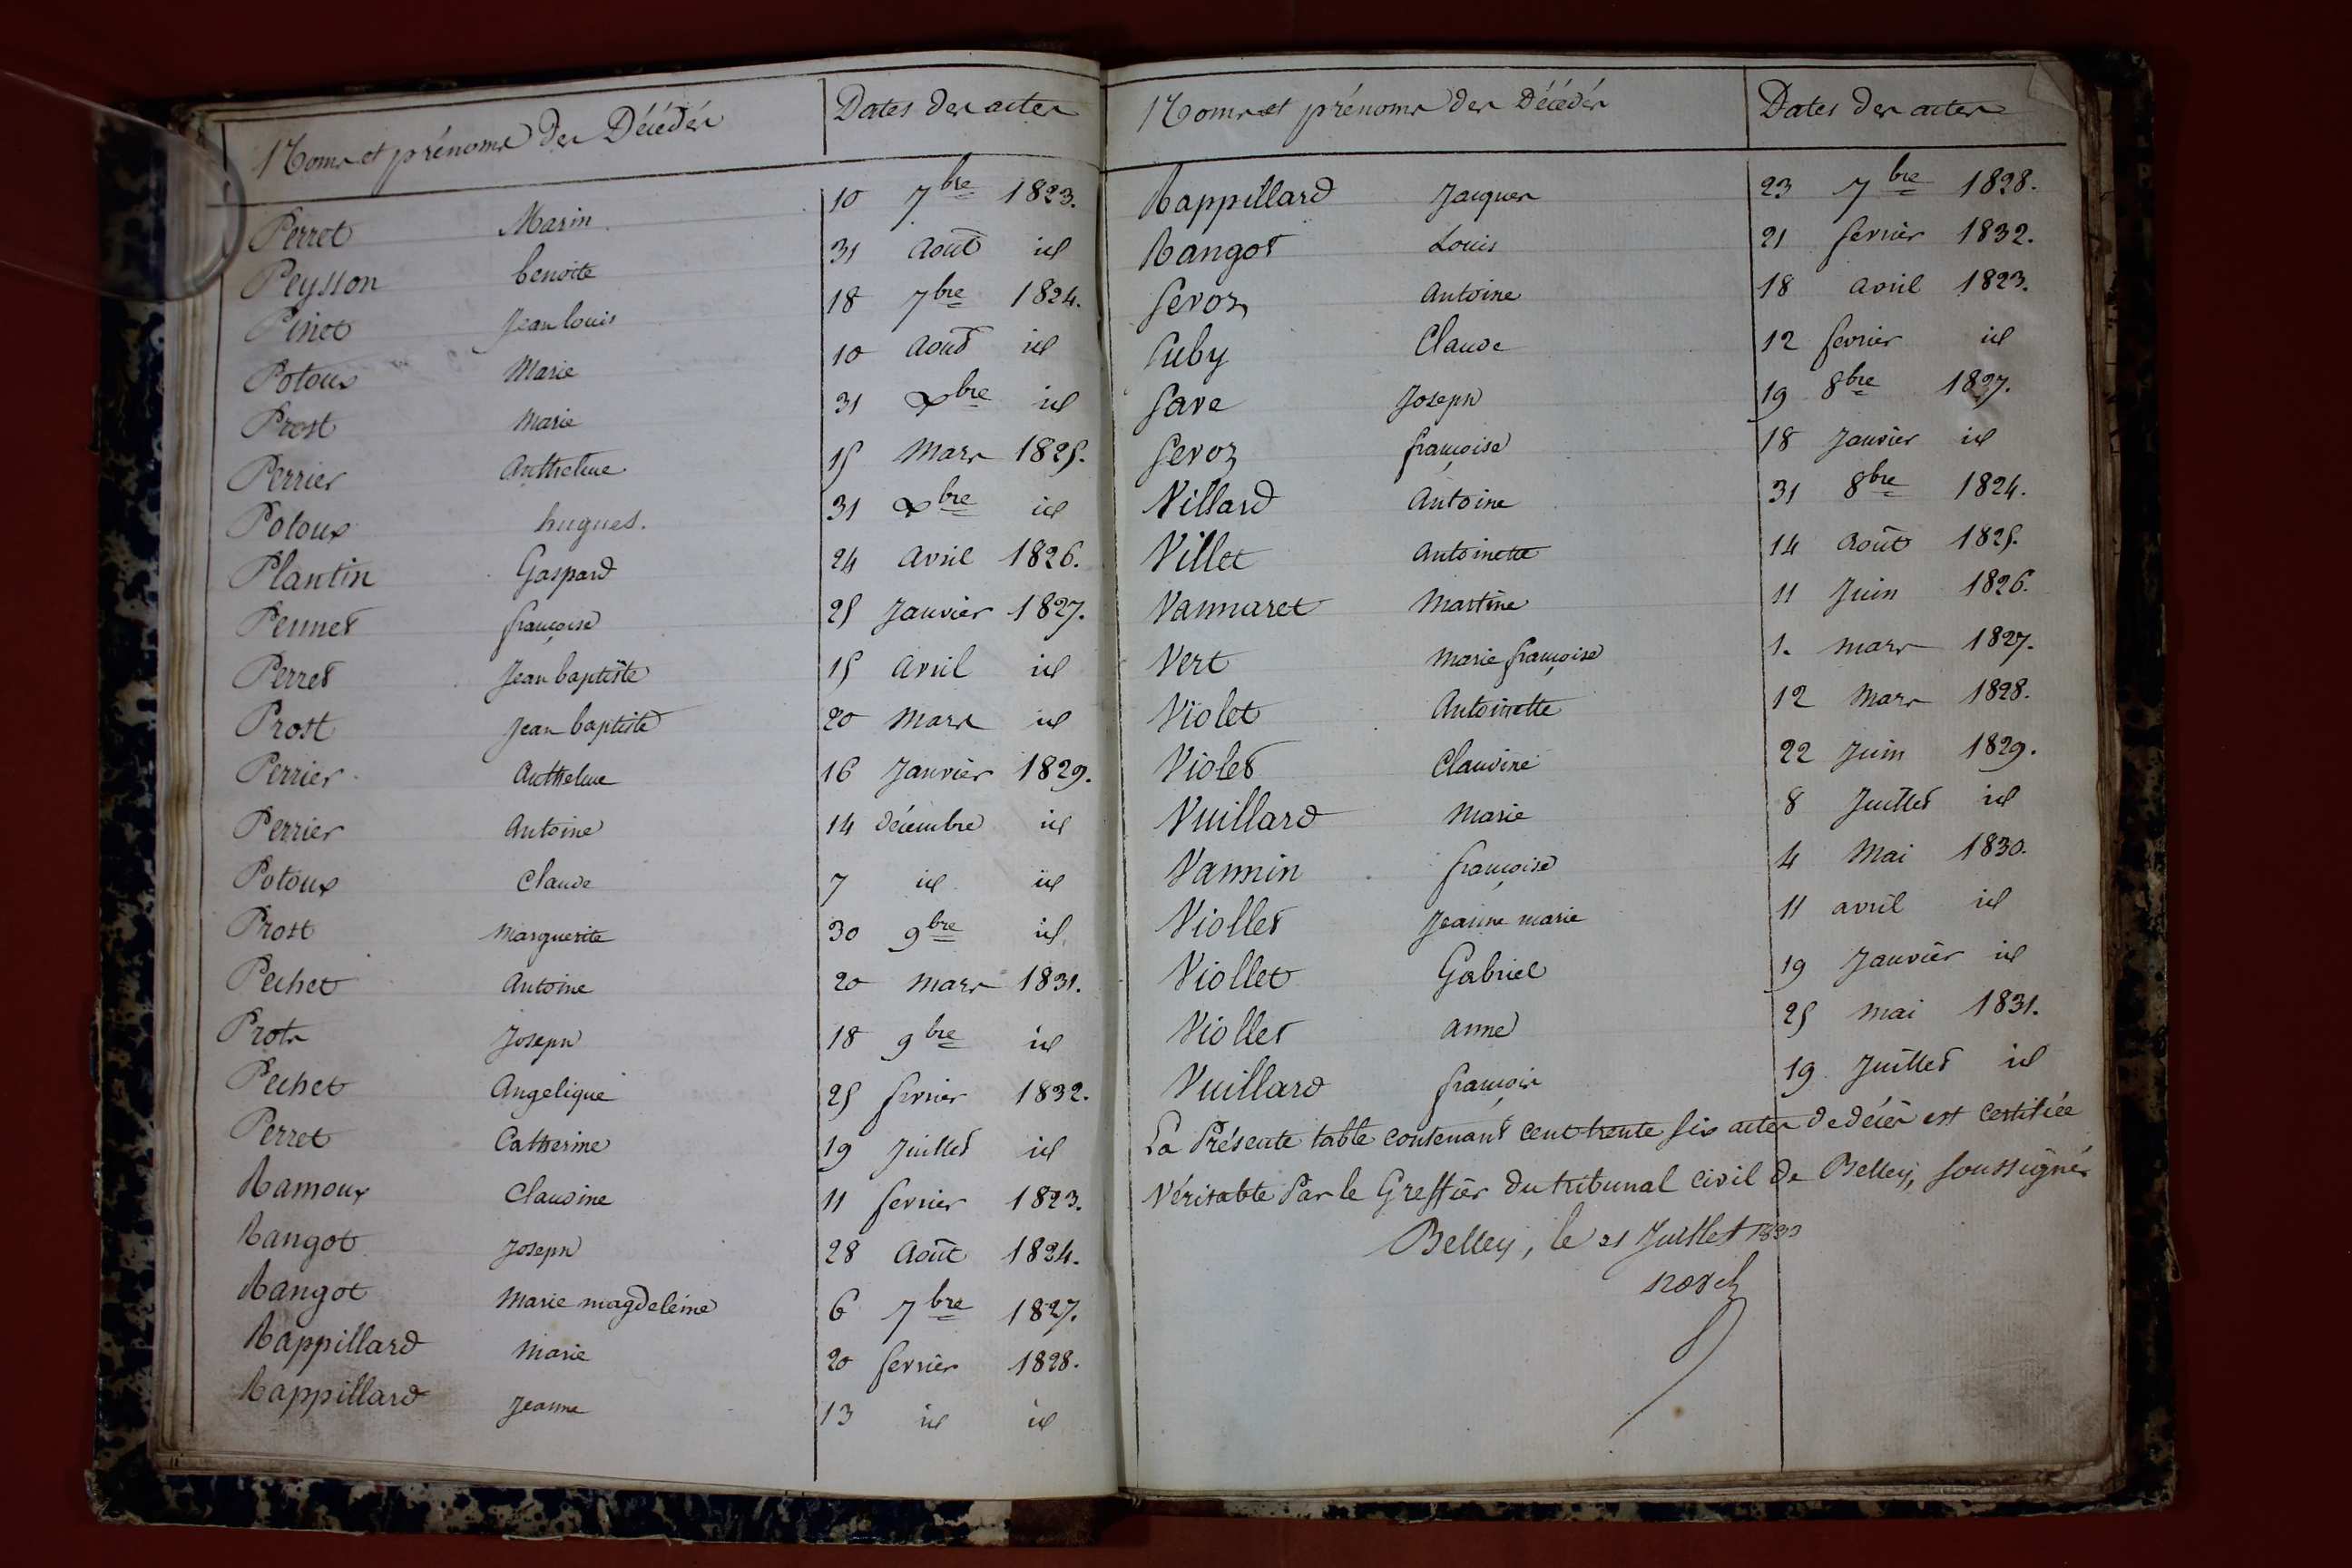 Noms et prénoms des Décédés Dates des actes
Perret Marin 10 7bre 1823.
Peysson benoite 31 août id
Pinet Jean louis 18 7bre 1824.
Potoux Marie 10 août id
Prost Marie 31 Xbre id
Perrier Anthelme 15 Mars 1825.
Potoux hugues. 31 Xbre id
Plantin Gaspard 24 avril 1826.
Pennet françoise 25 Janvier 1827.
Perret Jean baptiste 15 avril id
Prost Jean baptiste 20 Mars id
Perrier Anthelme 16 Janvier 1829.
Perrier Antoine 14 décembre id
Potoux Claude 7 id id
Prost Marguerite 30 9bre id
Pechet Antoine 20 mars 1831.
Joseph 18 9bre id
Pechet Angelique 25 fevrier 1832.
Perret Catherine 19 Juillet id
Ramoux Claudine 11 fevrier 1823.
Rangot Joseph 28 Août 1824.
Rangot Marie magdeleine 6 7bre 1827.
Rappillard Marie 20 fevrier 1828.
Rappillard Jeanne 13 id id
Noms et prénoms des Décédés Dates des actes
Rappillard Jacques 23 7bre 1828.
Rangot Louis 21 fevrier 1832.
Sevoz Antoine 18 avril 1823.
Suby Claude 12 fevrier id
Save Joseph 19 8bre 1827.
Sevoz françoise 18 Janvier id
Villard Antoine 31 8bre 1824.
Villet Antoinette 14 Août 1825.
Vannaret Martine 11 Juin 1826.
Vert Marie françoise 1. mars 1827.
Violet Antoinette 12 Mars 1828.
Violet Claudine 22 Juin 1829.
Vuillard Marie 8 Juillet id
Vannin françoise 4 Mai 1830.
Viollet Jeanne marie 11 avril id
Viollet Gabriel 19 Janvier id
Viollet anne 25 mai 1831.
Vuillard françois 19 Juillet id
La Présente table contenant cent trente six actes de décès est certifiée
Véritable Par le Greffier du tribunal civil de Belley, soussigné
Belley, le 21 Juillet 1833